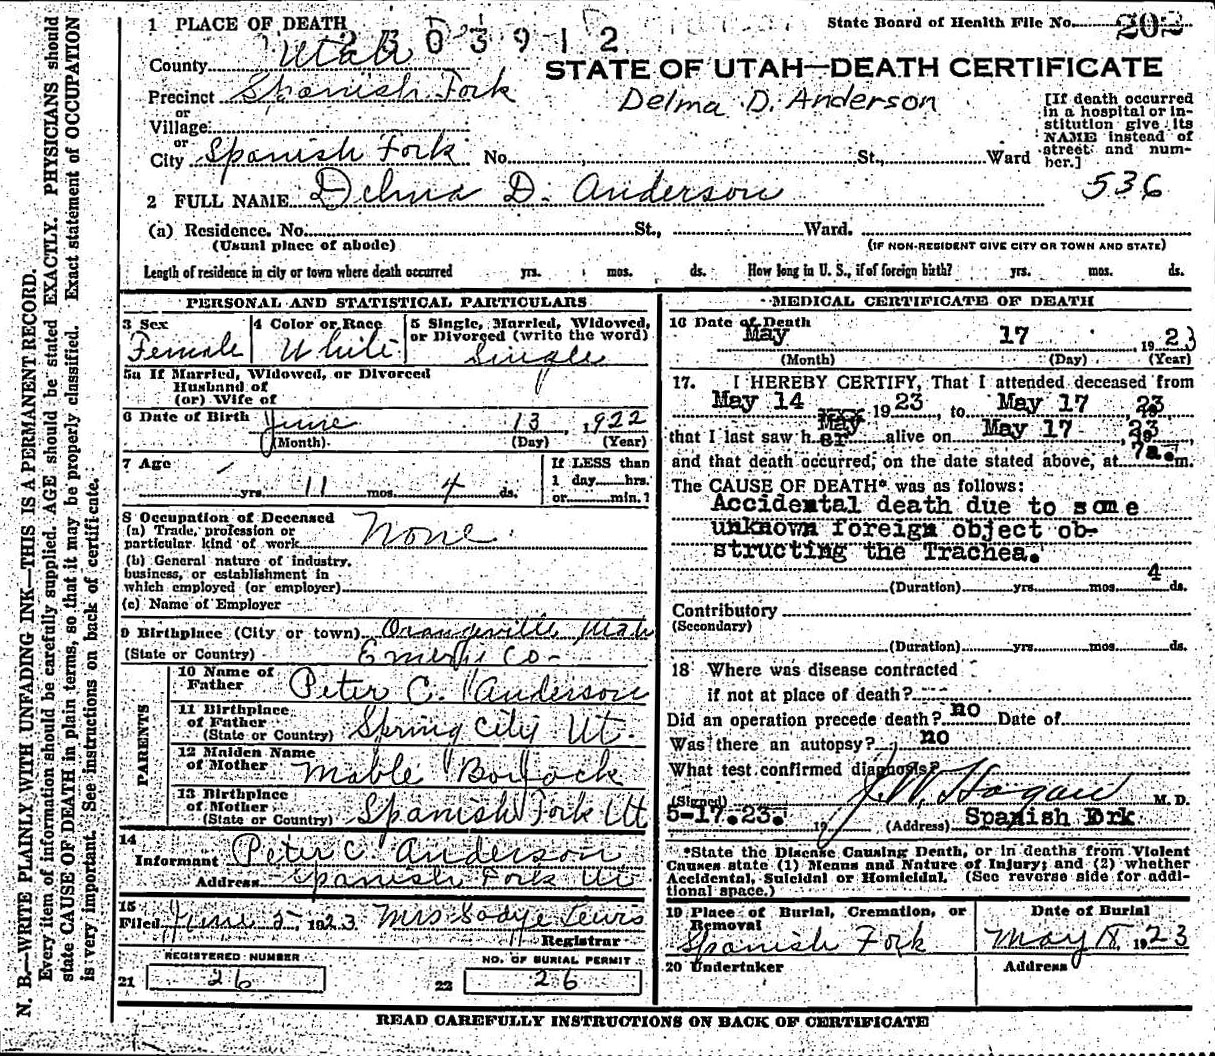 1 PLACE OF DEATH
State Board of Health File No. 202
2303912
County Utah
STATE OF UTAH—DEATH CERTIFICATE
Precinct Spanish Fork
Delma D. Anderson
[If death occurred in a hospital or institution give its NAME instead of street and number.]
or
Village
or
City Spanish Fork No. St., Ward
536
2 FULL NAME Delma D. Anderson
(a) Residence. No. St., Ward.
(Usual place of abode) (IF NON-RESIDENT GIVE CITY OR TOWN AND STATE)
Length of residence in city or town where death occurred yrs. mos. ds. How long in U. S., if of foreign birth? yrs. mos. ds.
PERSONAL AND STATISTICAL PARTICULARS
3 Sex 4 Color or Race 5 Single, Married, Widowed,
or Divorced (write the word)
Female White Single
5a If Married, Widowed, or Divorced
Husband of
(or) Wife of
6 Date of Birth June 13, 1922
(Month) (Day) (Year)
7 Age If LESS than
1 day hrs.
yrs. 11 mos. 4 ds. or min.?
8 Occupation of Deceased
(a) Trade, profession or
particular kind of work None
(b) General nature of industry,
business, or establishment in
which employed (or employer)
(c) Name of Employer
9 Birthplace (City or town) Orangeville Utah
(State or Country) Emery Co-
PARENTS
10 Name of
Father Peter C. Anderson
11 Birthplace
of Father Spring City Ut.
(State or Country)
12 Maiden Name
of Mother Mable
13 Birthplace
of Mother Spanish Fork Ut
(State or Country)
14
Informant Peter C. Anderson
Address Spanish Fork Ut
15
Filed June 5, 1923 Mrs Sadye Lewis
Registrar
REGISTERED NUMBER NO. OF BURIAL PERMIT
21 26 22 26
MEDICAL CERTIFICATE OF DEATH
16 Date of Death
May 17 1923
(Month) (Day) (Year)
17. I HEREBY CERTIFY, That I attended deceased from
May 14 1923, to May 17, 23,
May
that I last saw her alive on May 17, 23,
and that death occurred, on the date stated above, at 7a.m.
The CAUSE OF DEATH* was as follows:
Accidental death due to some
unknown foreign object ob-
structing the Trachea.
(Duration) yrs. mos. 4 ds.
Contributory
(Secondary)
(Duration) yrs. mos. ds.
18 Where was disease contracted
if not at place of death?
Did an operation precede death? no Date of
Was there an autopsy? no
What test confirmed diagnosis?
(Signed) J.W. Hagan M. D.
5-17.23. 19 (Address) Spanish Fork
*State the Disease Causing Death, or in deaths from Violent
Causes state (1) Means and Nature of Injury; and (2) whether
Accidental, Suicidal or Homicidal. (See reverse side for addi-
tional space.)
19 Place of Burial, Cremation, or Date of Burial
Removal
Spanish Fork May 18, 1923
20 Undertaker Address
READ CAREFULLY INSTRUCTIONS ON BACK OF CERTIFICATE
N. B.—WRITE PLAINLY WITH UNFADING INK—THIS IS A PERMANENT RECORD.
Every item of information should be carefully supplied. AGE should be stated EXACTLY. PHYSICIANS should
state CAUSE OF DEATH in plain terms, so that it may be properly classified. Exact statement of OCCUPATION
is very important. See instructions on back of certificate.